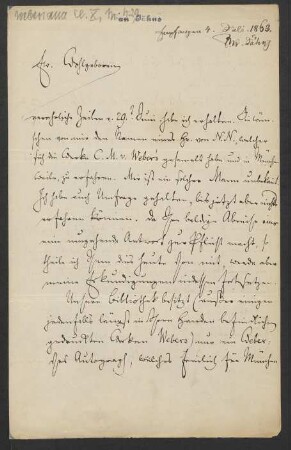 an Jähns
4. Juli. 1863.
Ew. Wohlgeboren
verehrliche Zeilen v. 29. Juni habe ich erhalten. Sie wün-
schen von mir den Namen eines Hr. von N. N., welcher
sich die Werke C. M. v. Webers gesammelt habe und in München
lebe, zu erfahren. Mir ist ein solcher Mann unbekannt.
Ich habe auch Umfrage gehalten, bis jetzt aber nichts
erfahren können. Da Ihre baldige Abreise eine
eine umgehende Antwort zur Pflicht macht, so
theile ich Ihnen dies heute schon mit, werde aber
meine Erkundigungen indessen fortsetzen.
Unsere Bibliothek besitzt (außer einigen
jedenfalls längst in Ihren Händen befindlichen
gedruckten Werken Webers) nur ein Weber-
sches Autograph, welches freilich für München